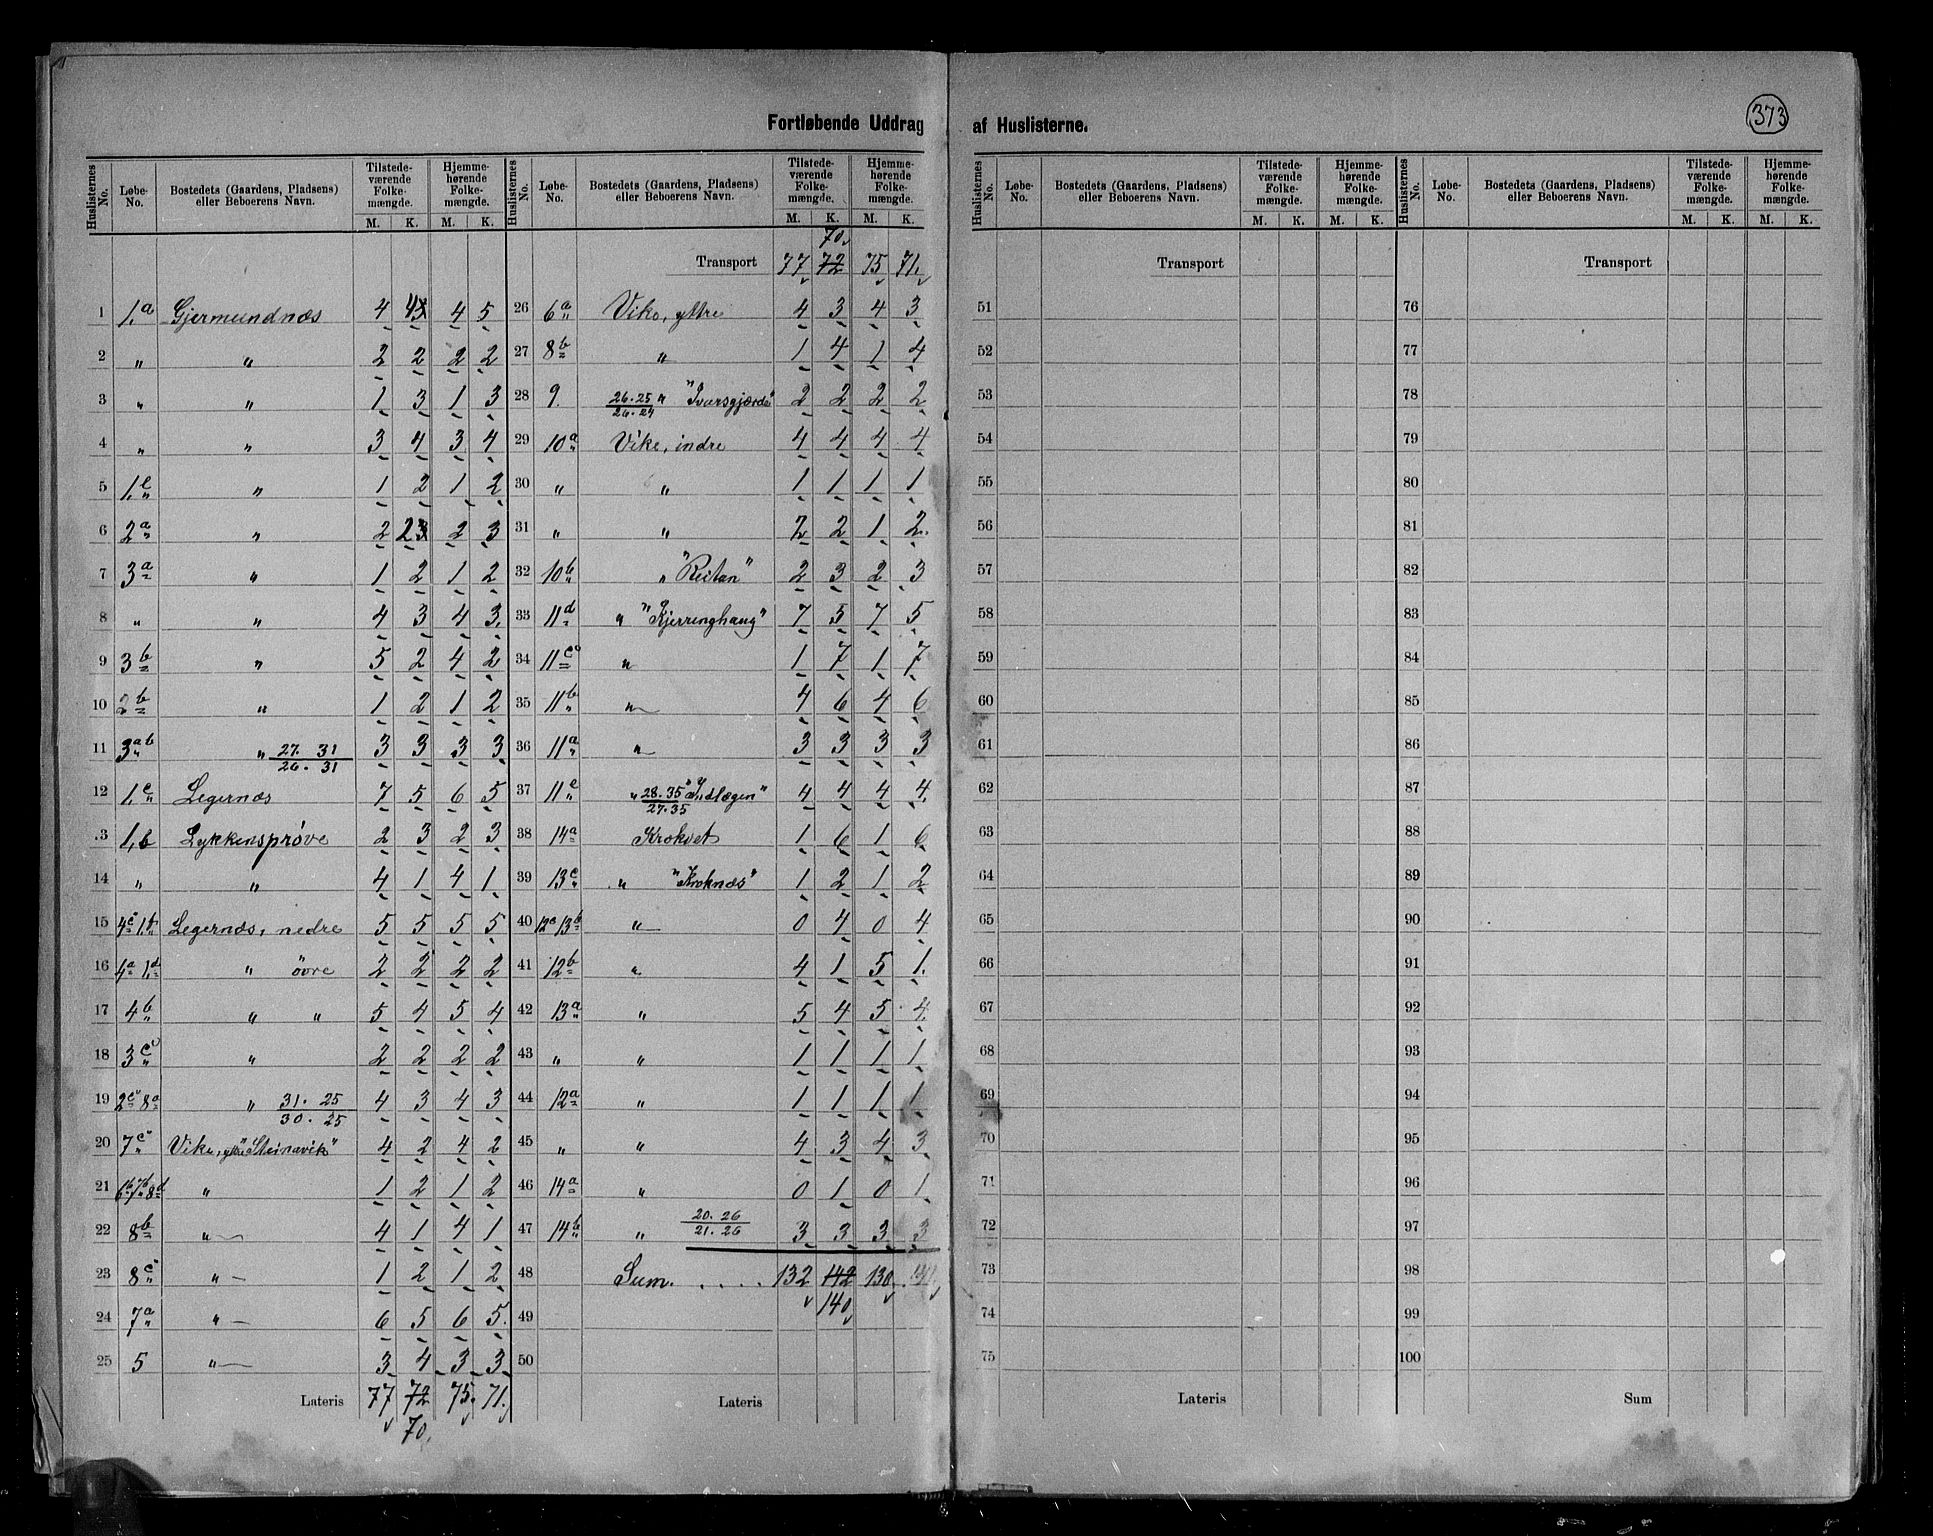 Fortløbende Uddrag af Huslisterne.
373
Huslisternes No. Løbe-No. Bostedets (Gaardens, Pladsens) eller Beboerens Navn. Tilstedeværende Folkemængde. M. K. Hjemmehørende Folkemængde. M. K.
1 1.a Gjermundnæs 4 4 4 5
2 " " 2 2 2 2
3 " " 1 3 1 3
4 " " 3 4 3 4
5 1.e " 1 2 1 2
6 2a " 2 2 2 3
7 3a " 1 2 1 2
8 " " 4 3 4 3.
9 3b " 5 2 4 2
10 2b " 1 2 1 2
11 3ab " 27. 31 / 26. 31 3 3 3 3
12 1.c Legernæs 7 5 6 5
13 1.b Lykkensprøve 2 3 2 3
14 " " 4 1 4 1
15 4c 1.f Legernæs, nedre 5 5 5 5
16 4a 1.d " övre 2 2 2 2
17 4b " " 5 4 5 4
18 3c " 2 2 2 2
19 2c 8a " 31. 25 / 30. 25 4 3 4 3
20 7c Vike, ytre "Steinavik" 4 2 4 2
21 6b 7b 8d " 1 2 1 2
22 8b " 4 1 4 1
23 8c " 1 2 1 2
24 7a " 6 5 6 5.
25 5 " 3 4 3 3
Lateris 77 72 75. 71.
70.
Huslisternes No. Løbe-No. Bostedets (Gaardens, Pladsens) eller Beboerens Navn. Tilstedeværende Folkemængde. M. K. Hjemmehørende Folkemængde. M. K.
70.
Transport 77 72 75 71.
26 6a Vike, yttre 4 3 4 3
27 8b " 1 4 1 4
28 9. 26.25 / 26.24 " "Ivarsgjærde" 2 2 2 2
29 10a Vike, indre 4 4 4 4
30 " " 1 1 1 1
31 " " 2 2 1 2.
32 10b " "Reitan" 2 3 2 3
33 11d " "Kjerringhaug" 7 5 7 5
34 11c " 1 7 1 7
35 11b " 4 6 4 6
36 11a " 3 3 3 3
37 11e " 28.35 / 27.35 "Indlægen" 4 4 4 4.
38 14a Krokset 1 6 1 6
39 13c " "Kroknæs" 1 2 1 2
40 12c 13b " 0 4 0 4
41 12b " 4 1 5 1.
42 13a " 5 4 5 4.
43 " " 1 1 1 1
44 12a " 1 1 1 1
45 " " 4 3 4 3
46 14a " 0 1 0 1
47 14b " 20. 26 / 21. 26 3 3 3 3
48 Sum. . . . . 132 142 130. 141
140
49
50
Lateris
Huslisternes No. Løbe-No. Bostedets (Gaardens, Pladsens) eller Beboerens Navn. Tilstedeværende Folkemængde. M. K. Hjemmehørende Folkemængde. M. K.
Transport
51
52
53
54
55
56
57
58
59
60
61
62
63
64
65
66
67
68
69
70
71
72
73
74
75
Lateris
Huslisternes No. Løbe-No. Bostedets (Gaardens, Pladsens) eller Beboerens Navn. Tilstedeværende Folkemængde. M. K. Hjemmehørende Folkemængde. M. K.
Transport
76
77
78
79
80
81
82
83
84
85
86
87
88
89
90
91
92
93
94
95
96
97
98
99
100
Sum